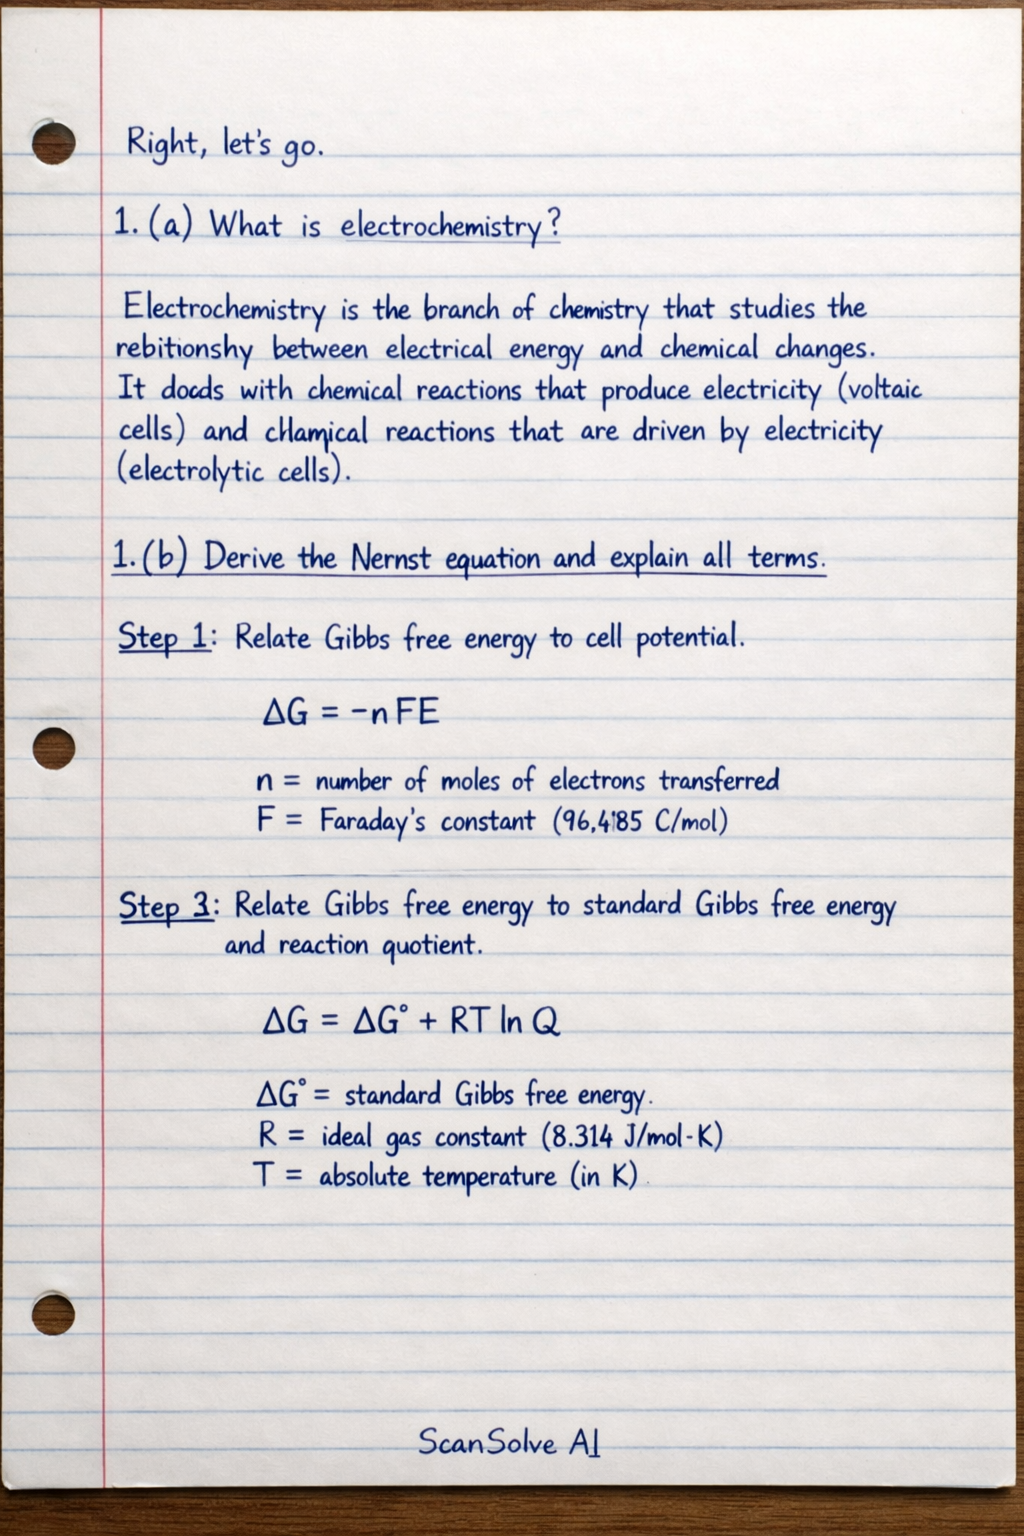 Right, let's go.
1. (a) What is electrochemistry?
Electrochemistry is the branch of chemistry that studies the
rebitionshy between electrical energy and chemical changes.
It docds with chemical reactions that produce electricity (voltaic
cells) and cHamical reactions that are driven by electricity
(electrolytic cells).
1. (b) Derive the Nernst equation and explain all terms.
Step 1: Relate Gibbs free energy to cell potential.
ΔG = -nFE
n = number of moles of electrons transferred
F = Faraday's constant (96,485 C/mol)
Step 3: Relate Gibbs free energy to standard Gibbs free energy
and reaction quotient.
ΔG = ΔG° + RT ln Q
ΔG° = standard Gibbs free energy.
R = ideal gas constant (8.314 J/mol-K)
T = absolute temperature (in K)
ScanSolve AI